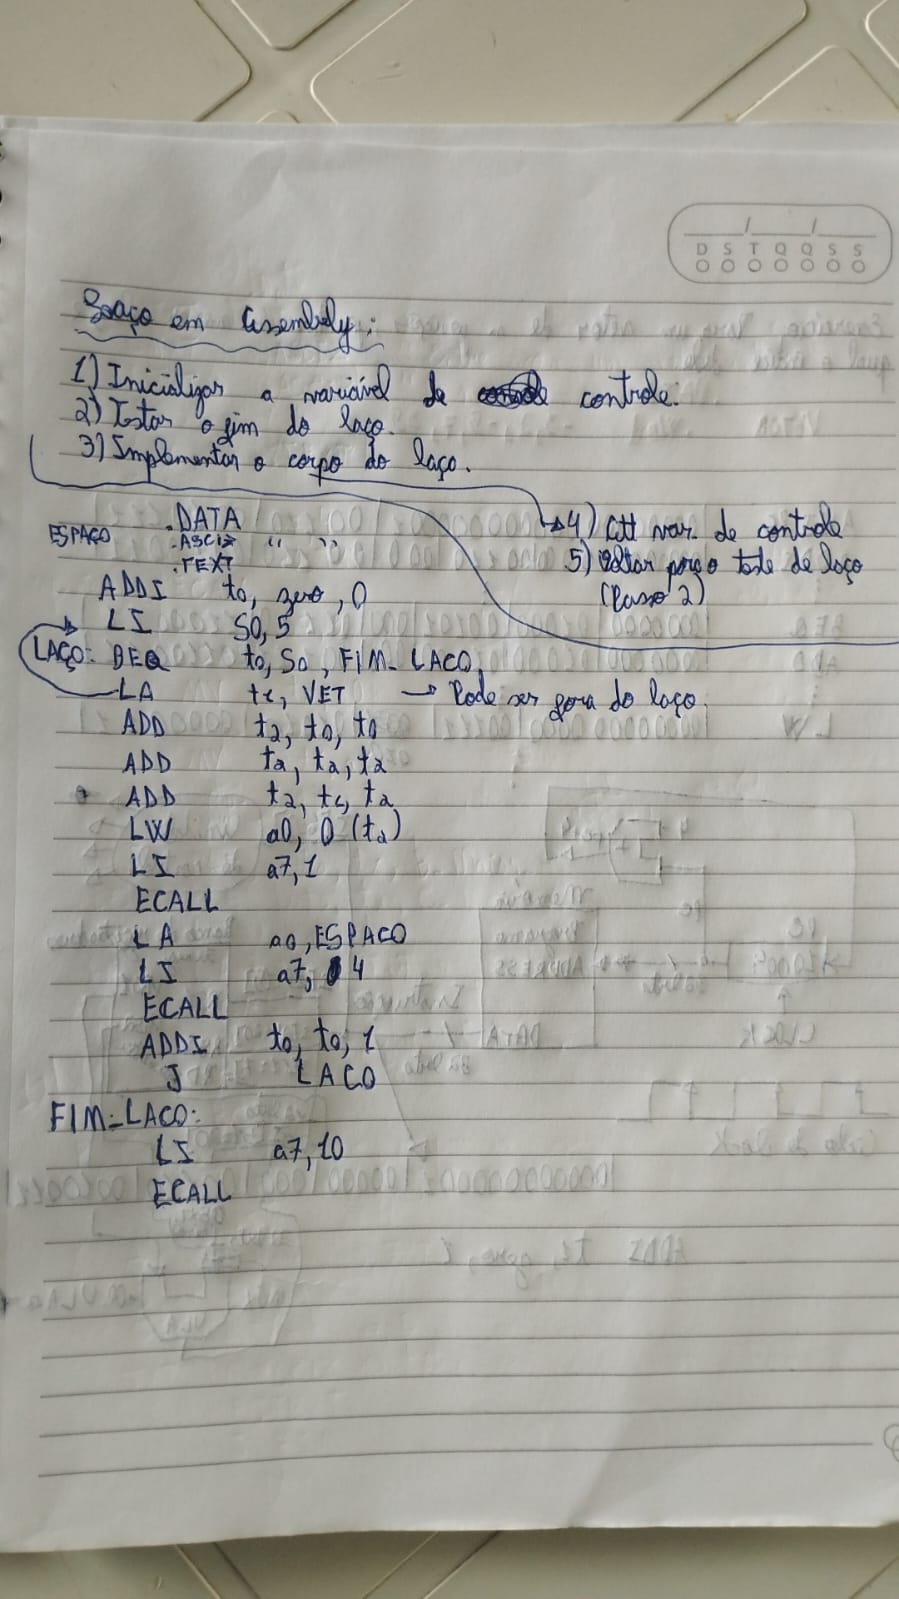 D S T Q Q S S
Laço em Assembly:
1) Inicializar a variável de controle.
2) Testar o fim do laço.
3) Implementar o corpo do laço.
4) Att var. de controle
5) Voltar para o teste de laço
(Passo 2)
.DATA
ESPAÇO .ASCIZ " "
.TEXT
ADDI t0, zero, 0
LI S0, 5
LAÇO: BEQ t0, S0, FIM_LACO
LA t1, VET → Pode ser fora do laço.
ADD t2, t0, t0
ADD t2, t2, t2
ADD t2, t1, t2
LW a0, 0 (t2)
LI a7, 1
ECALL
LA a0, ESPACO
LI a7, 4
ECALL
ADDI t0, t0, 1
J LACO
FIM_LACO:
LI a7, 10
ECALL